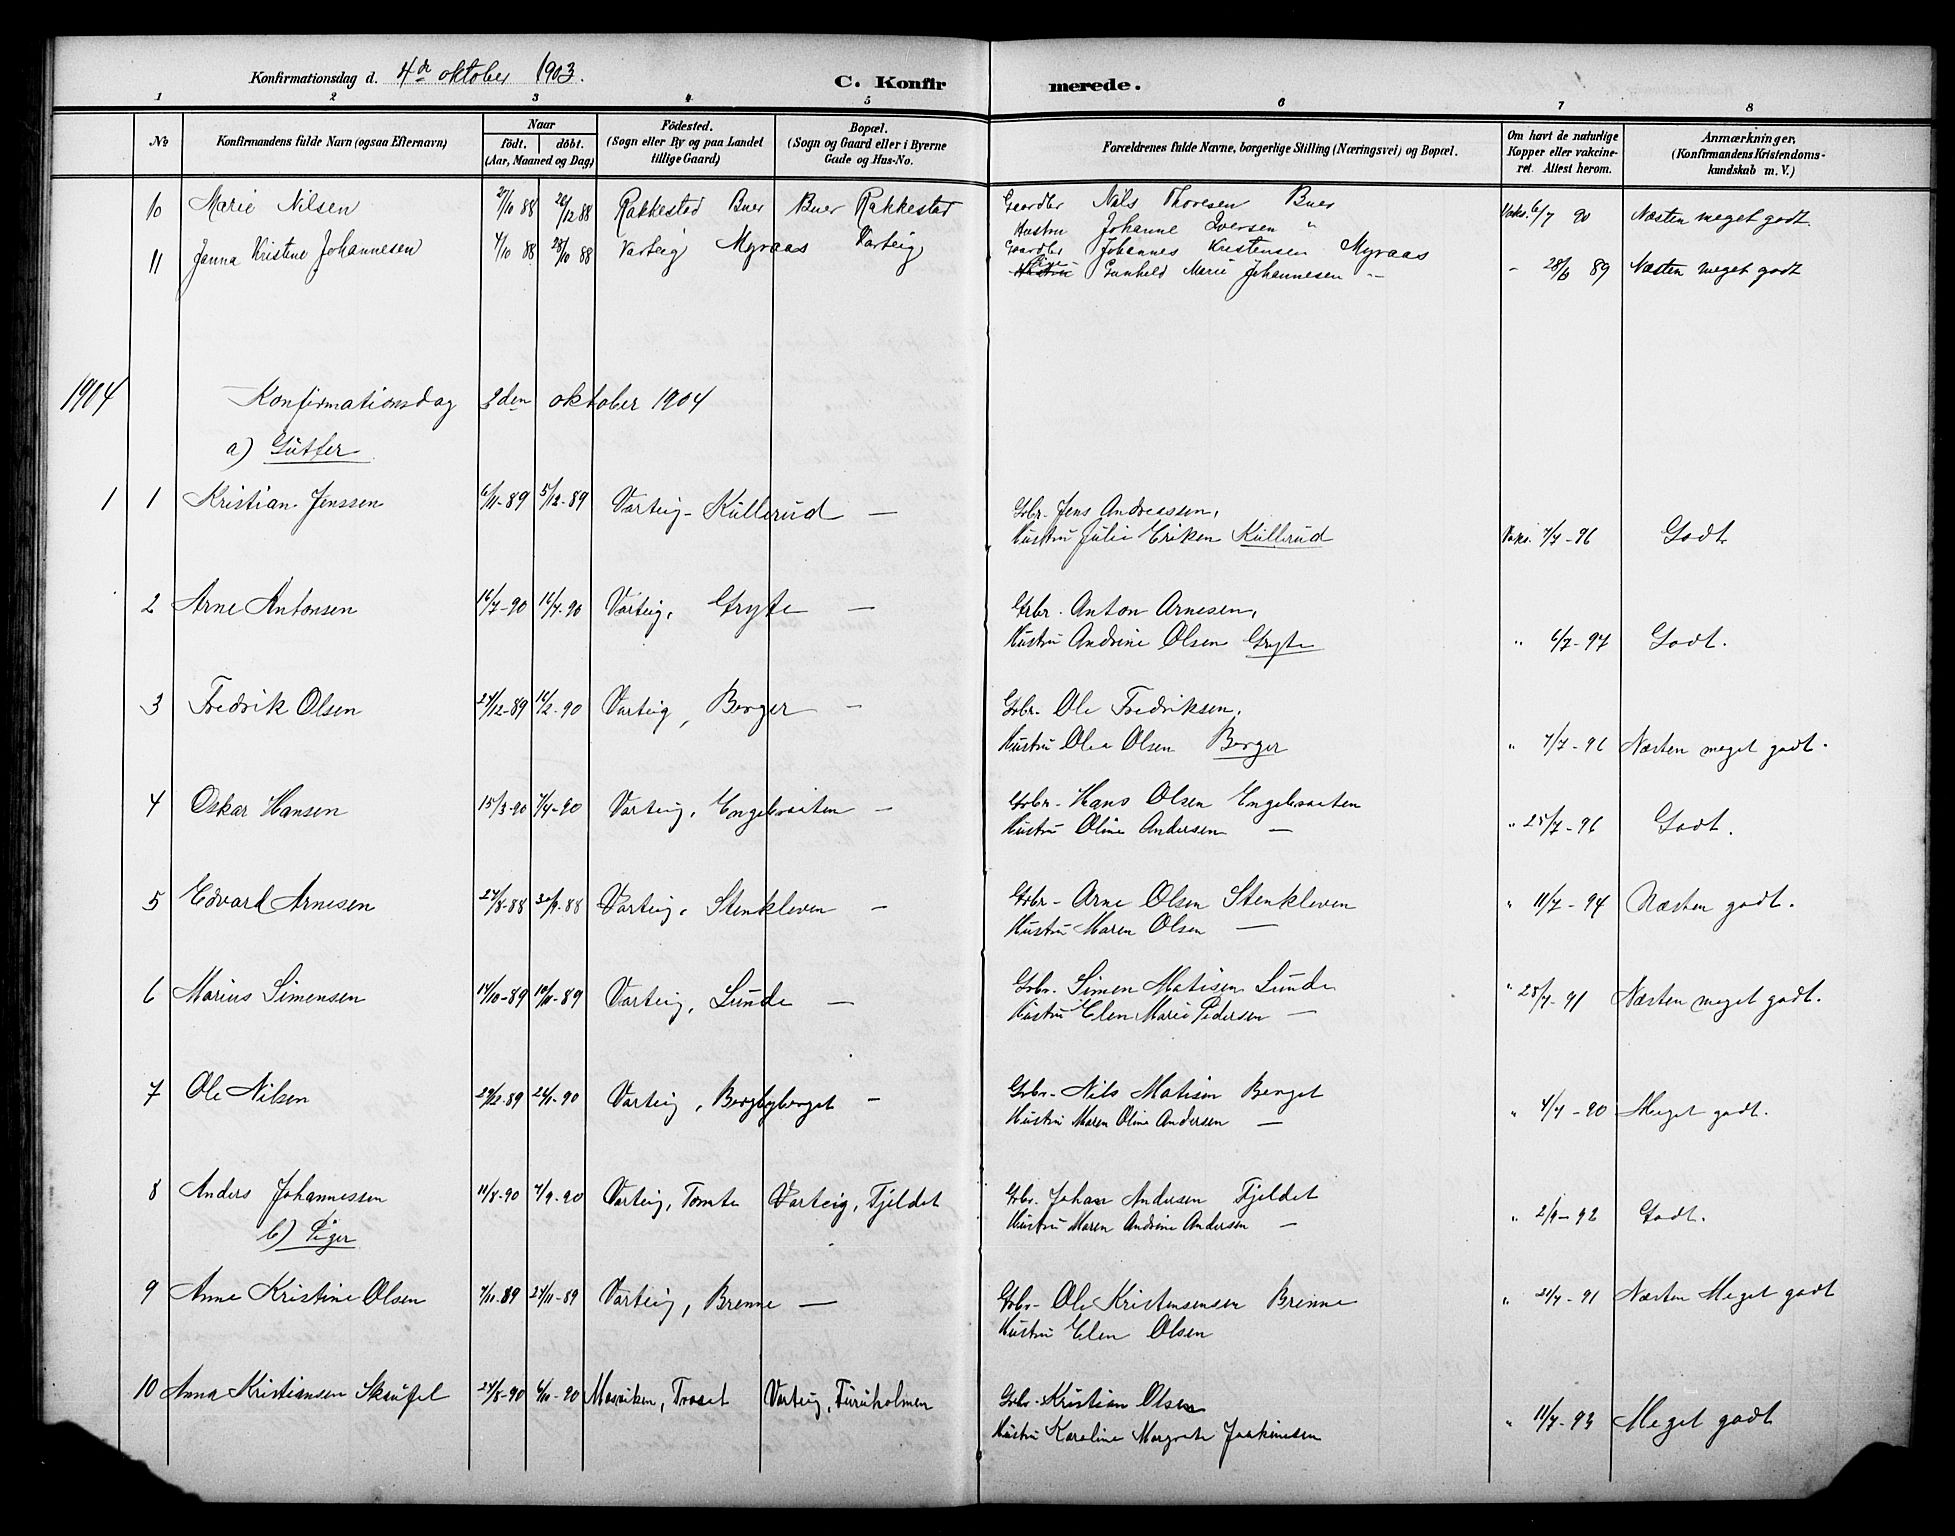 Konfirmationsdag d. 4de oktober 1903. C. Konfir merede.
1 2 3 4 5 6 7 8
No Konfirmandens fulde Navn (ogsaa Efternavn) Naar født. døbt. (Aar, Maaned og Dag) Fødested. (Sogn eller By og paa Landet tillige Gaard) Bopæl. (Sogn og Gaard eller i Byerne Gade og Hus-No. Forældrenes fulde Navne, borgerlige Stilling (Næringsvei) og Bopæl. Om havt de naturlige Kopper eller vakcineret. Attest herom. Anmærkninger, (Konfirmandens Kristendomskundskab m. V.)
10 Marie Nilsen 27/10 88 26/12 88 Rakkestad Buer Buer Rakkestad Gaardbr Nils Thoresen Buer Vaks. 6/7 90 Næsten meget godt.
Hustru Johanne Iversen "
11 Janna Kristine Johannesen 4/10 88 28/10 88 Varteig Myraas Varteig Gaardbr Johannes Kristensen Myraas
Gunhild Marie Johannesen - 28/6 89 Næsten meget godt
1904 Konfirmationsdag 2den oktober 1904
a) Gutter
1 1 Kristian Jenssen 6/11-89 5/12-89 Varteig - Kullerud — Grbr. Jens Andreassen,
Hustru Julie Eriksen Kullerud Vaks. 7/7-96 Godt
2 Arne Antonsen 16/7-90 Varteig, Gryte — Grbr. Anton Arnesen,
Hustru Andrine Olsen Gryte " 6/7-94 Godt.
3 Fredrik Olsen 27/12-89 16/2-90 Varteig, Berger — Grbr. Ole Fredriksen,
Hustru Olea Olsen Berger " 7/7-96 Næsten meget godt.
4 Oskar Hansen 15/3-90 7/4-90 Varteig, Engebraaten — Grbr. Hans Olsen Engebraaten
Hustru Oline Andersen — " 25/7-96 Godt.
5 Edvard Arnesen 27/8-88 30/9-88 Varteig, Stenkleven — Grbr. Arne Olsen Stenkleven " 11/7-94 Næsten godt.
Hustru Maren Olsen —
6 Marius Simensen 14/10-89 10/11-89 Varteig, Lunde — Grbr. Simen Matisen Lunde " 28/7-91 Næsten meget godt.
Hustru Elen Marie Pedersen —
7 Ole Nilsen 29/12-89 26/1-90 Varteig, Bergbyberget — Grbr. Nils Matisen Berget
Hustru Maren Oline Andersen — " 4/7-90 Meget godt.
8 Anders Johannessen 11/8-90 7/9-90 Varteig, Tomte Varteig, Fjeldet Grbr. Johan Andersen Fjeldet
b) Piger Hustru Maren Andrine Andersen — " 2/9-92 Godt.
9 Anne Kristine Olsen 7/11-89 24/11-89 Varteig, Brenne — Grbr. Ole Kristensensen Brenne " 21/7-91 Næsten Meget godt
Hustru Elen Olsen
10 Anna Kristiansen Skauføl 24/8-90 6/11-90 Varteig, Furuholmen Grbr. Kristian Olsen
Hustru Karoline Margrete Joakimsen " 11/7-93 Meget godt